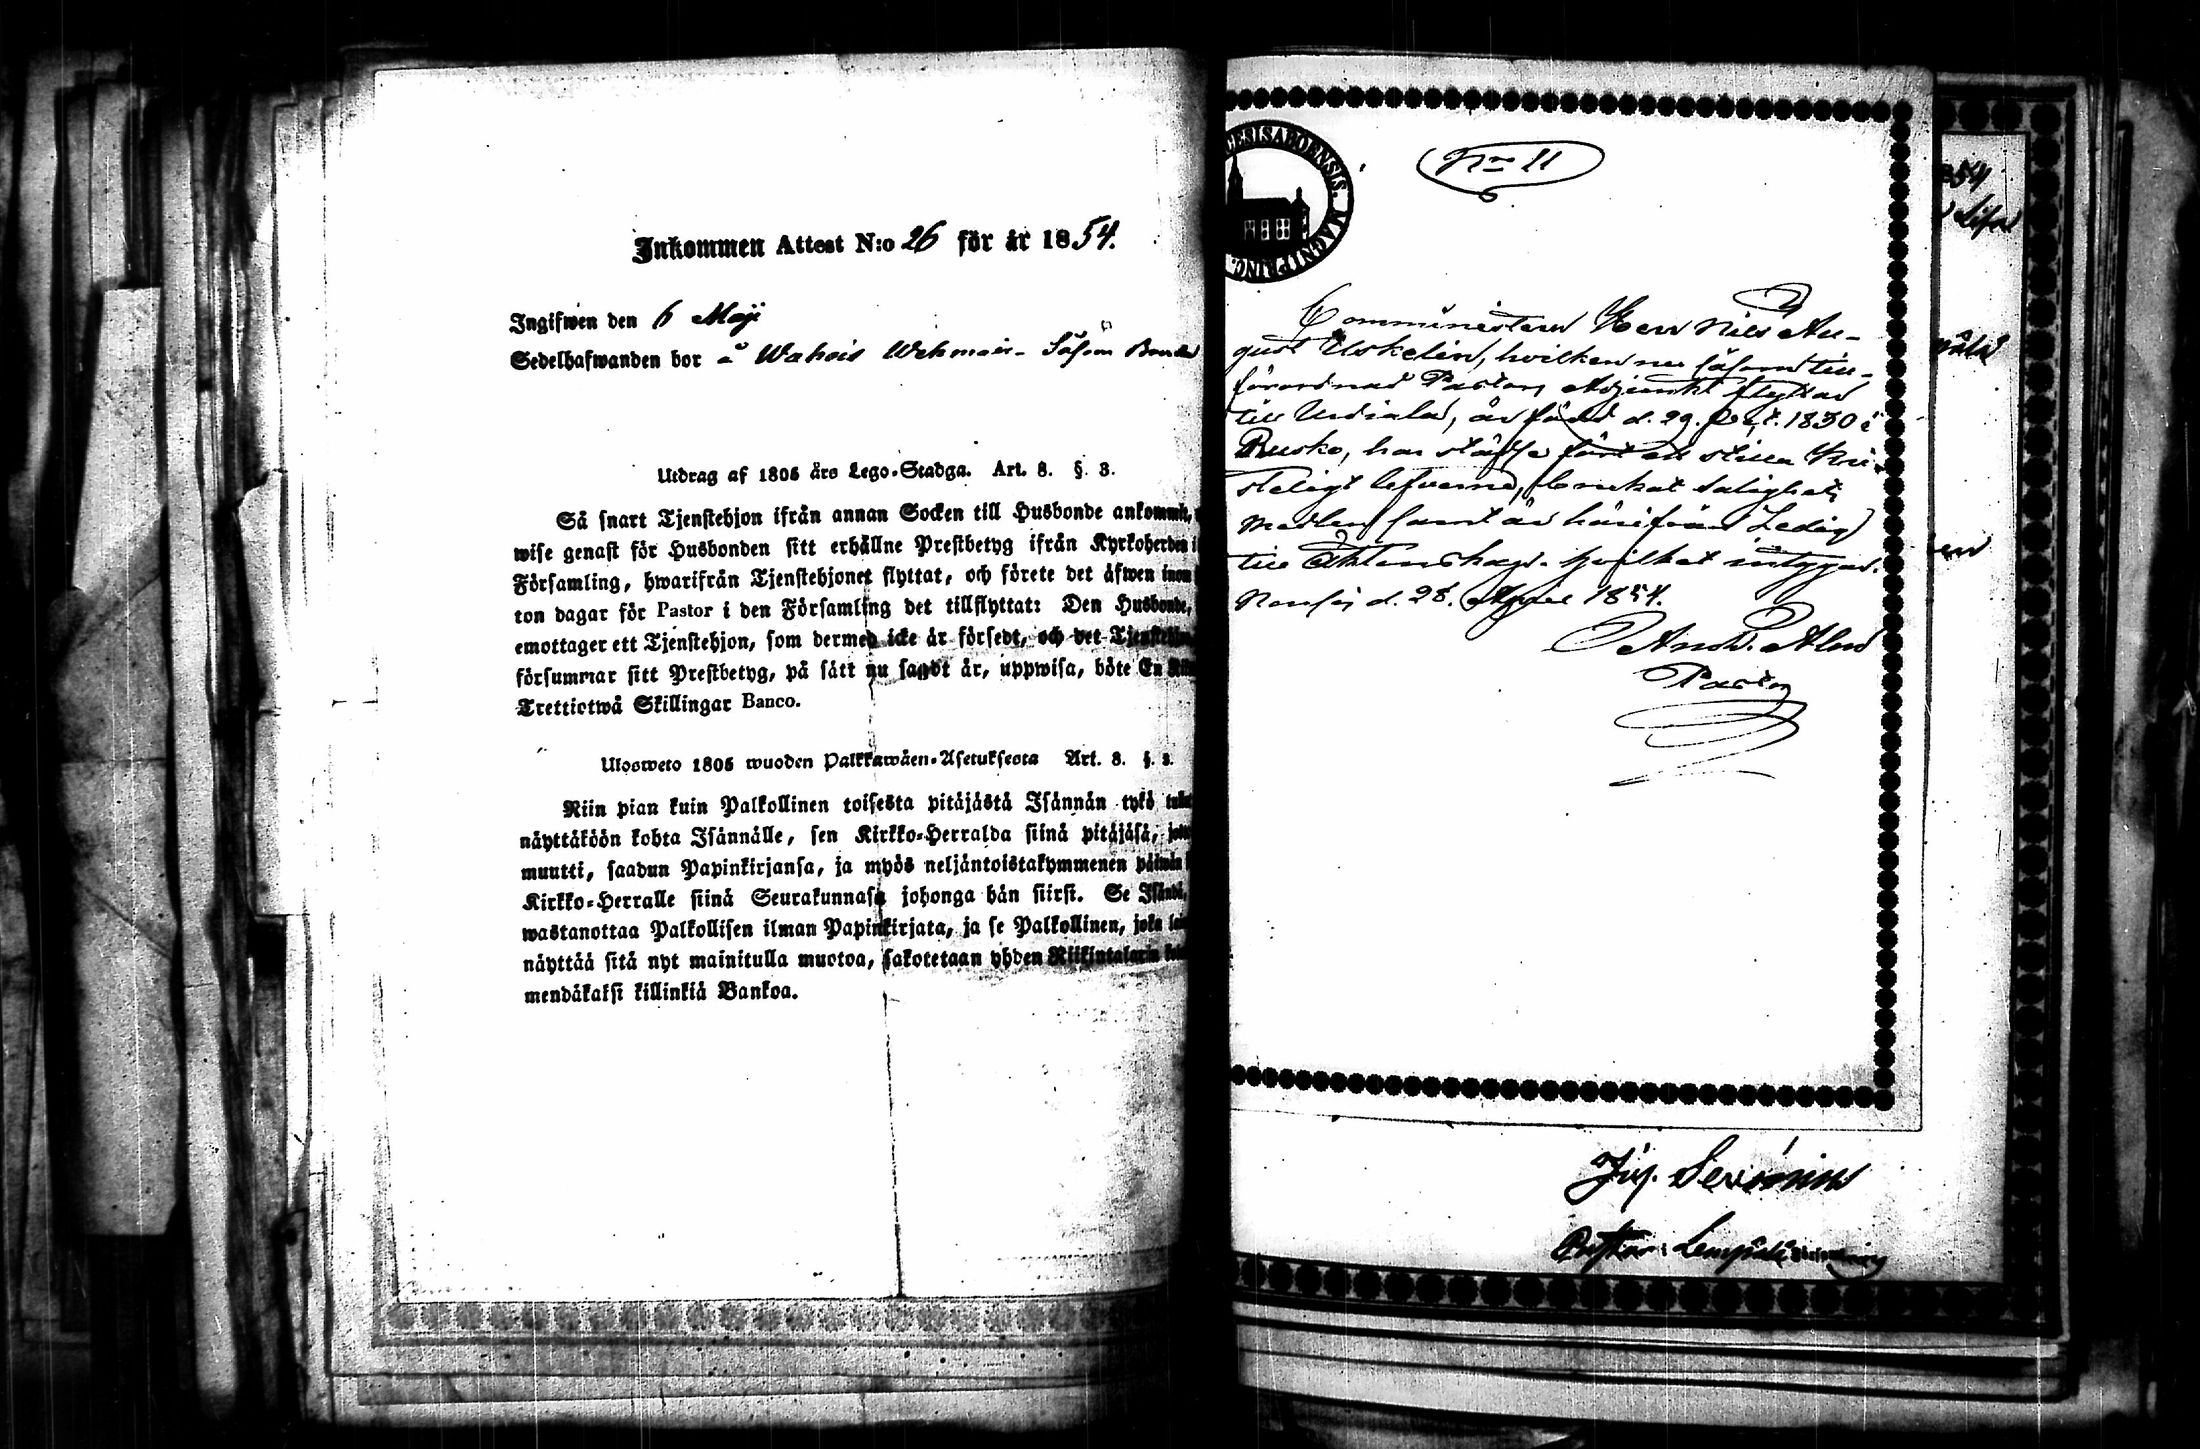 Inkommen Attest N:o 26 för år 1854.
Ingifwen den 6 Maji
Sedelhafwanden bor å Wahois Wehmais- Såsom
Utdrag af 1805 års Lego-Stadga. Art. 8. §. 3.
Så snart Tjenstehjon ifrån annan Socken till Husbonde ankommit,
wise genast för Husbonden sitt erhållne Prestbetyg ifrån Kyrkoherden i
Församling, hwarifrån Tjenstehjonet flyttat, och förete det åfwen inom
ton dagar för Pastor i den Församling det tillflyttat: Den Husbonde,
emottager ett Tjenstehjon, som dermed icke är försedt, och det Tjenstehjon
försummar sitt Prestbetyg, på sått nu sagdt är, uppwisa, böte En
Trettiotwå Skillingar Banco.
Uloosweto 1805 wuoden Palkkawäen-Asetuksesta Art. 8. §. 3.
Niin pian kuin Palkollinen toisesta pitäjästä Isännän tykö
näyttäköön kohta Isännälle, sen Kirkko-Herralda siinä pitäjäsä,
muutti, saadun Papinkirjansa, ja myös neljäntoistakymmenen päiwän
Kirkko-Herralle siinä Seurakunnasa johonga hän siirsi. Se Isändä,
wastanottaa Palkollisen ilman Papinkirjata, ja se Palkollinen, joka
näyttää sitä nyt mainitulla muotoa, sakotetaan yhden Riikintalarin
mendäkaksi killinkiä Bankoa.
CESISABOENSIS. MAGNI PRINC.
No 11
Communistern Herr Nils Au-
gust Uskelin, hvilken nu såsom till-
förordnad Pastors Adjunkt flyttar
till Urdiala, är född d. 29. Oct. 1830 i
Rusko, har städse fört ett stilla Kri-
steligt lefverne, brukat salighets
medlen samt är härifrån Ledig
till Äktenskap. Hvilket intygar.
d. 28. April 1854.
And. Alm
Pastor
854
Pastor i Lempälä